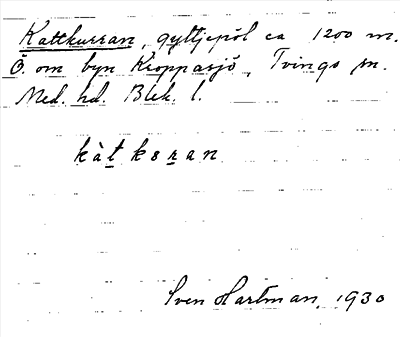 Kattkurran, gyttjepöl ca 1200 m.
Ö. om byn Kroppasjö, Tvings sn.
Med. hd. Blek. l.
kàt kɵran
Sven Hartman, 1930